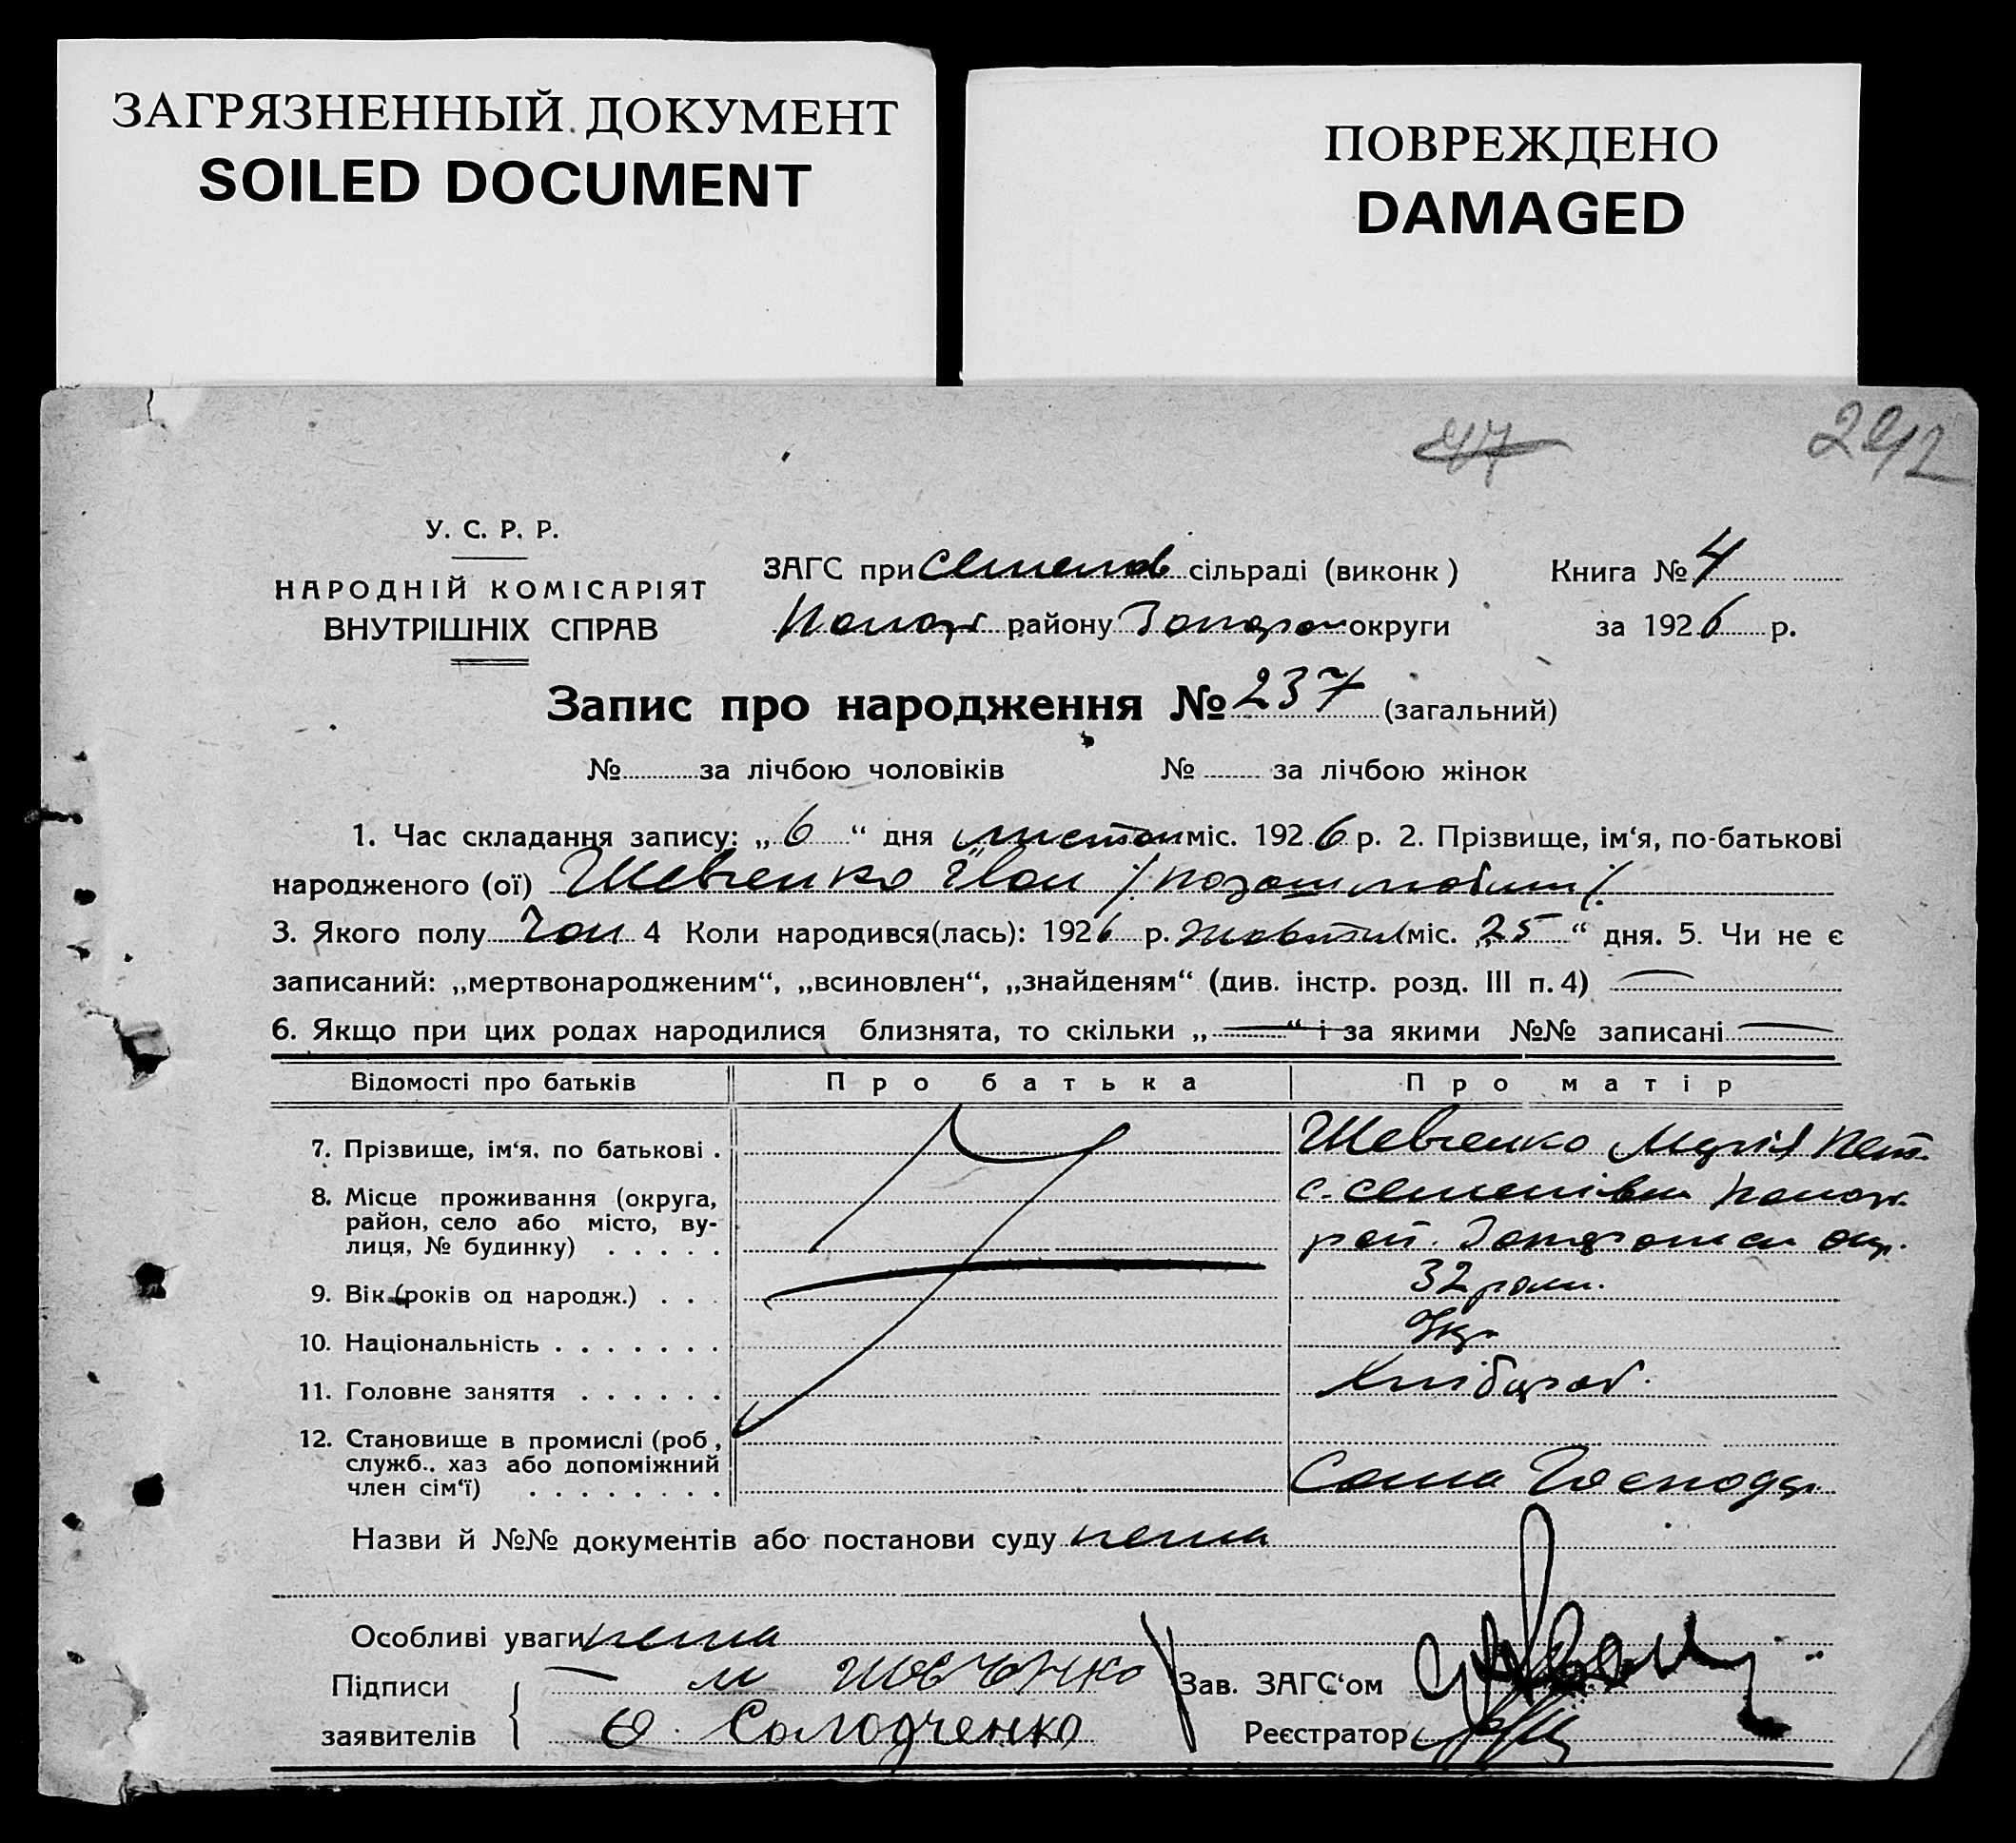 ЗАГРЯЗНЕННЫЙ ДОКУМЕНТ
SOILED DOCUMENT
ПОВРЕЖДЕНО
DAMAGED
47
292
У. С. Р. Р.
НАРОДНІЙ КОМІСАРІЯТ
ВНУТРІШНІХ СПРАВ
ЗАГС при Семенов сільраді (виконк)
району округи
Книга № 4
за 1926 р.
Запис про народження № 237 (загальний)
№ за лічбою чоловіків № за лічбою жінок
1. Час складання запису: „6“ дня листоп міс. 1926 р. 2. Прізвище, ім‘я, по-батькові
народженого (ої) Шевченко Іван /: позашлюбний :/
3. Якого полу Чол 4 Коли народився(лась): 1926 р. Жовтня міс. „25“ дня. 5. Чи не є
записаний: „мертвонародженим“, „всиновлен“, „знайденям“ (див. інстр. розд. III п. 4) —
6. Якщо при цих родах народилися близнята, то скільки „—“ і за якими №№ записані —
Відомості про батьків Про батька Про матір
7. Прізвище, ім‘я, по батькові . Шевченко Марія Пет.
8. Місце проживання (округа, с. Семенівка
район, село або місто, ву-
лиця, № будинку) . . . . . рай. окр.
9. Вік (років од народж.) . . . 32 роки.
10. Національність . . . . . . . Укр
11. Головне заняття . . . . . . Хлібороб.
12. Становище в промислі (роб,
служб., хаз або допоміжний
член сім‘ї) . . . . . . . . Сама Господар.
Назви й №№ документів або постанови суду нема
Особливі уваги нема
Підписи
заявителів
М Шевченко
Ф. Солодченко
Зав. ЗАГС‘ом
Реєстратор